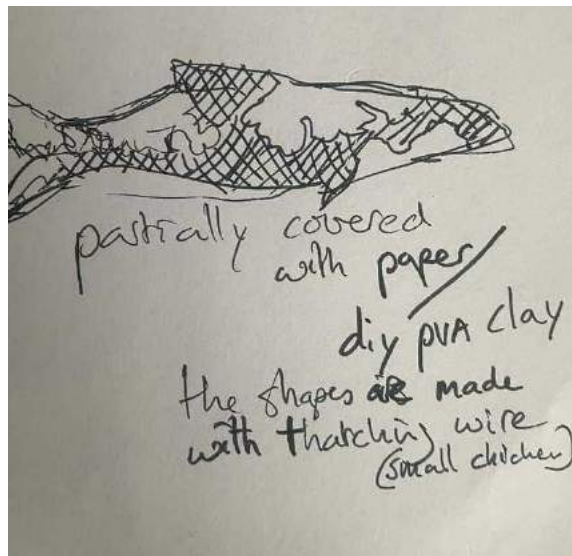 partially covered
with paper/
diy PVA clay
the shapes are made
with thatching wire
(small chicken)